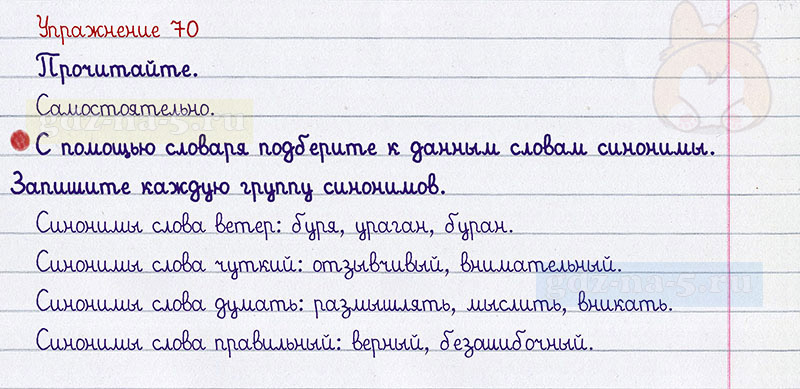 Упражнение 70
Прочитайте.
Самостоятельно.
gdz-na-5.ru
С помощью словаря подберите к данным словам синонимы.
Запишите каждую группу синонимов.
Синонимы слова ветер: буря, ураган, буран.
Синонимы слова чуткий: отзывчивый, внимательный.
gdz-na-5.ru
Синонимы слова думать: размышлять, мыслить, вникать.
Синонимы слова правильный: верный, безошибочный.